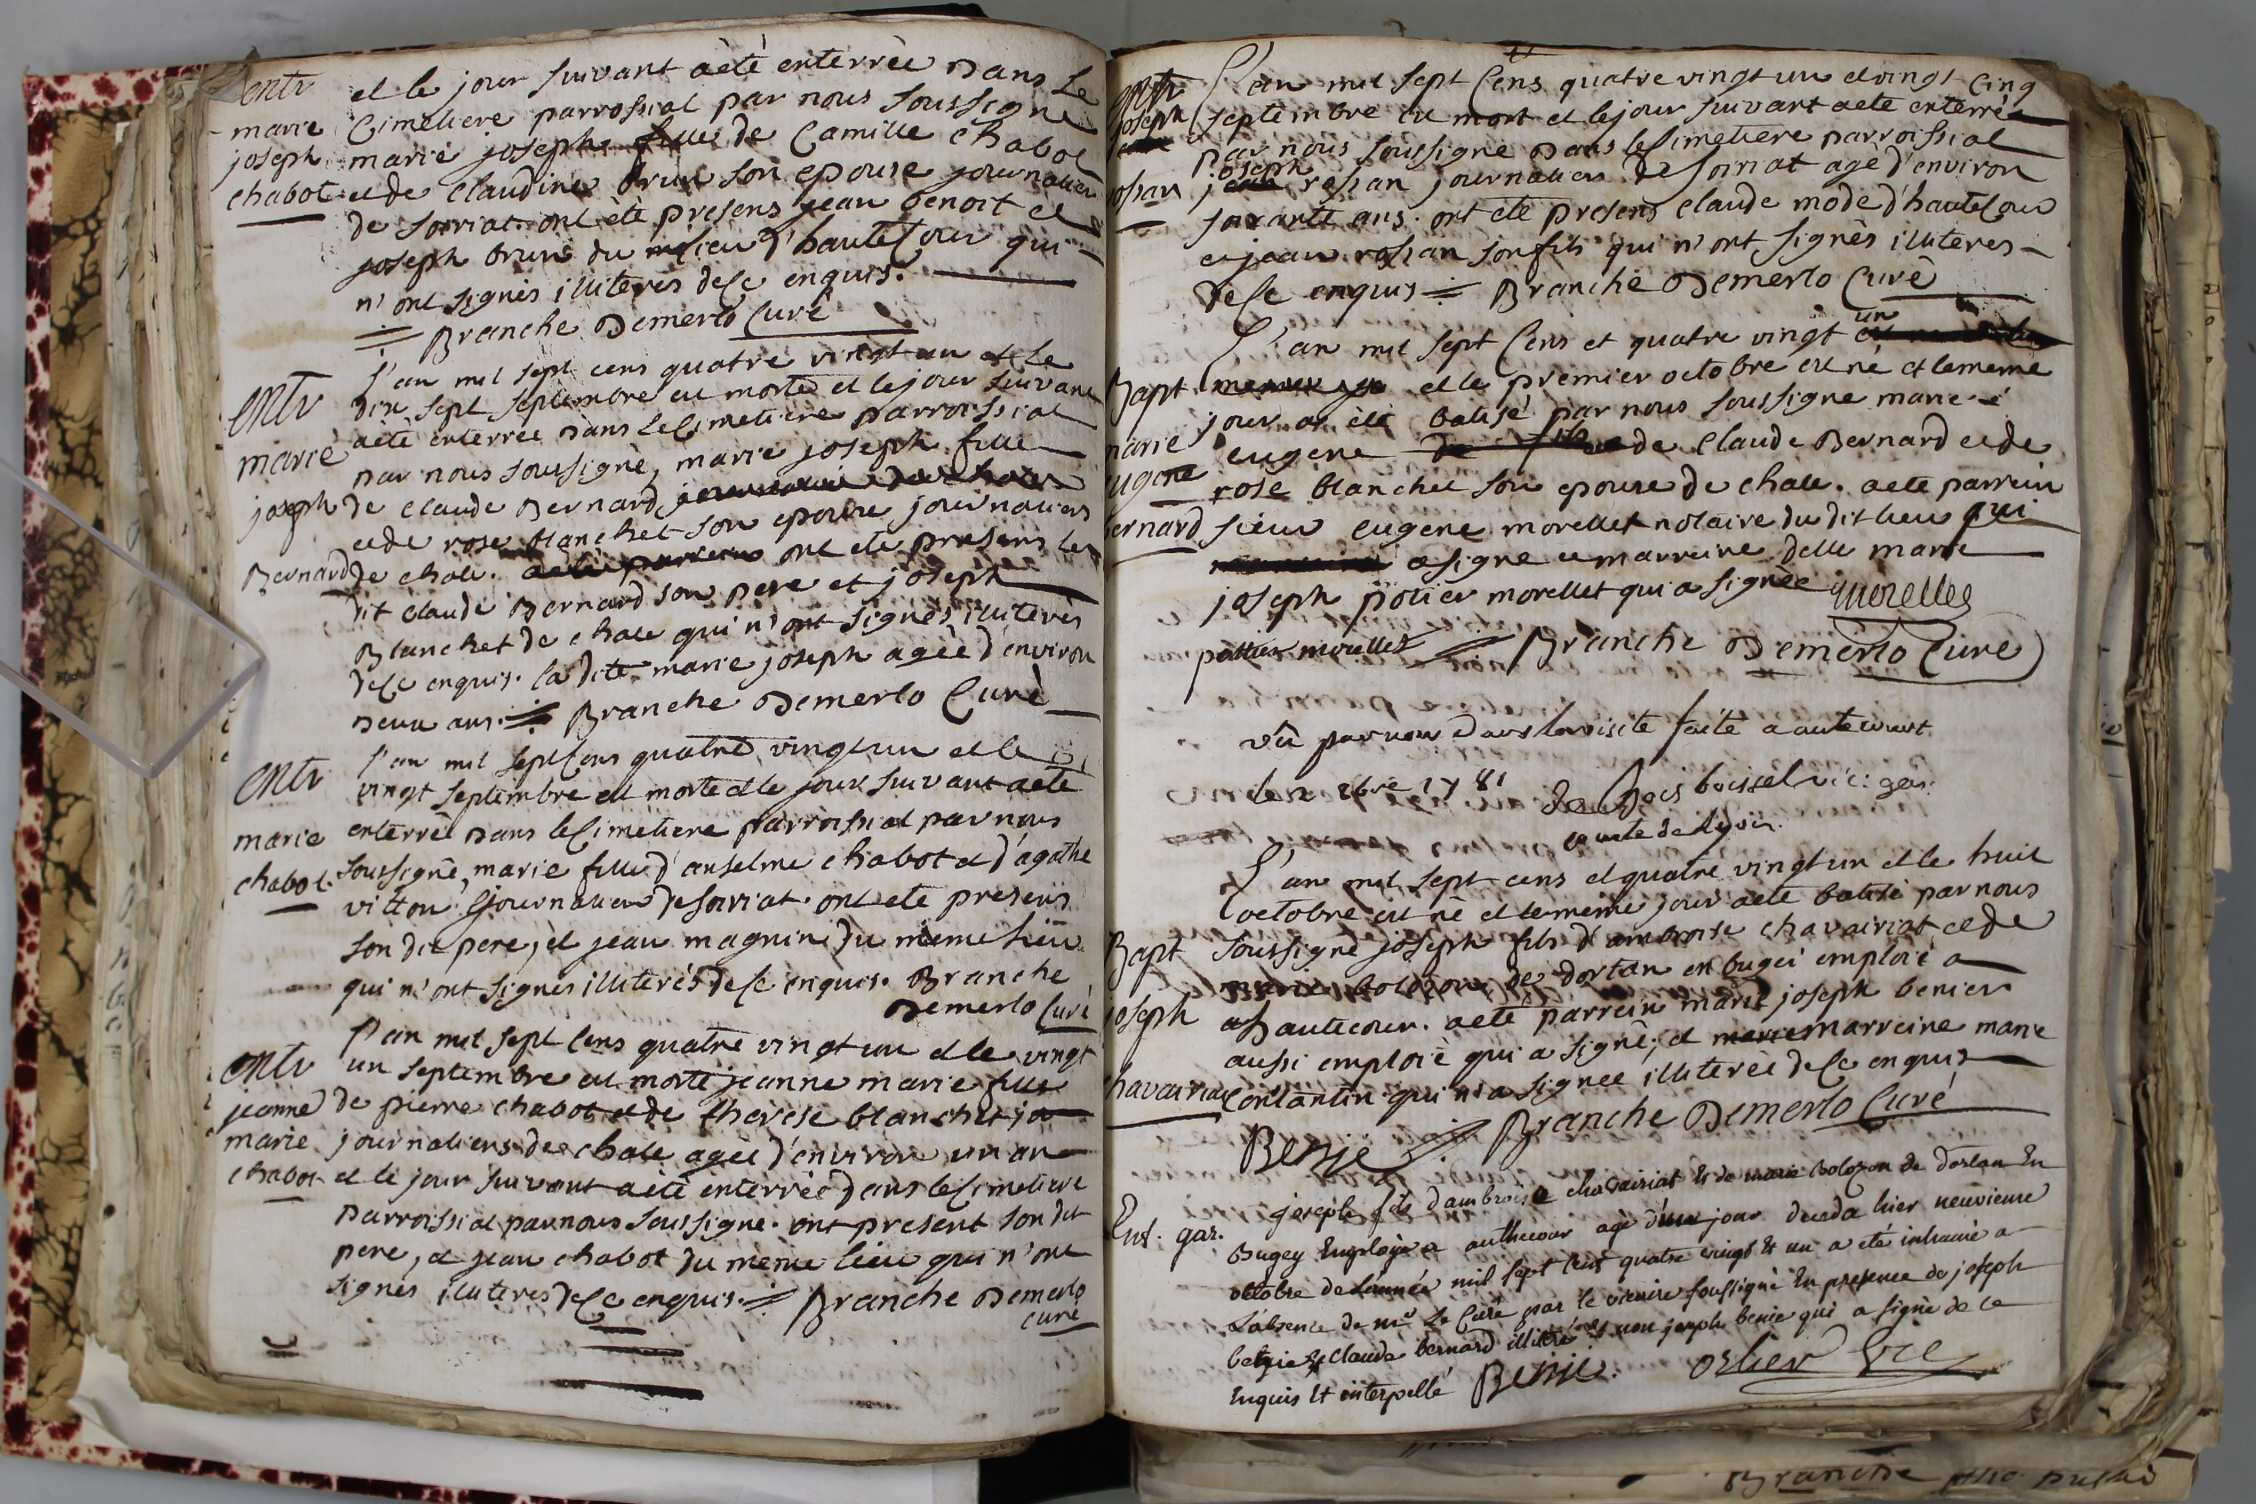 entr
marie
joseph
chabot
et le jour suivant aèté enterrèe dans Le
Cimetiere parrossial par nous soussigné
marie joseph fille de Camille Chabot
et de Claudine Brun son epouse journalier
de soiriat. ont ètè presens jean benoit et
joseph brun du milieu d'hauteCour qui
n'ont signès illiterès de Ce enquis.
Branche Demerlo Curé
entr
marie
joseph
Bernard
L'an mil sept cens quatre vingt un et Le
dix sept septembre est morte et le jour suivant
aèté enterrèe dans le Cimetiere parroissial
par nous soussigné, marie joseph fille
de Claude Bernard
et de rose blanchet son epouse journaliers
de chale. ont ete presens le
dit Claude Bernard son pere et joseph
Blanchet de chale qui n'ont signès illiterès
de Ce enquis. la dite marie joseph agèe d'environ
deux ans. Branche Demerlo Curè
entr
marie
chabot.
L'an mil sept Cens quatre vingt un et le
vingt septembre est morte et le jour suivant aeté
enterrè dans le Cimetiere parroissial par nous
soussigné, marie fille d'anselme chabot et d'agathe
vitton journalier de soiriat. ont ete presens
son dit pere, et jean magnin du meme lieu
qui n'ont signès illiterès de Ce enquis. Branche
Demerlo Curé
entr
jeanne
marie
chabot
L'an mil sept Cens quatre vingt un et le vingt
un septembre est morte jeanne marie fille
de pierre chabot et de therese blanchet jo
journaliers de chale agee d'environ un an
et le jour suivant aètè enterrèe dans le Cimetiere
parroissial par nous soussigné. ont present son dit
pere, et jean chabot du meme lieu qui n'ont
signès illiteres de Ce enquis. Branche Demerlo
curé
entr
joseph
rossan
L'an mil sept Cens quatre vingt un et vingt Cinq
septembre est mort et le jour suivant aeté enterrèe
par nous soussigné dans le Cimetiere parroissial
joseph
rossan journalier de soiriat agé d'environ
soixante ans. ont ete presens Claude mode d'hauteCour
et jean rossan son fils qui n'ont signès illiteres
de Ce enquis Branche Demerlo Curé
Bapt
marie
eugene
bernard
L'an mil sept Cens et quatre vingt un
et le premier octobre est né et le meme
jour a ètè batisé par nous soussigné marie
eugene de Claude Bernard et de
rose blanchet son epouse de chale. aeté parrein
sieur eugene morellet notaire du dit lieu qui
a signé et marreine delle marie
joseph potier morellet qui a signèe Morellet
pottier morellet Branche Demerlo Curé
vû par nous dans la visite faite a autecourt
le 2 8bre 1781 De Bois boissel vic: gen:
comte de Lyon.
Bapt
joseph
chavairiat
L'an mil sept cens et quatre vingt un et le huit
octobre est né et le meme jour aeté batisé par nous
soussigné joseph fils d'ambroise chavairiat et de
marie bolozon de dortan en bugei emploié a
a hautecour. aeté parrein marie joseph benier
aussi emploié qui a signé, et marreine marie
Constantin qui n'a signèe illiterèe de Ce enquis
Benje Branche Demerlo Curé
Ent. gar.
joseph fils d'ambroise chavairiat & de marie bolozon de dortan En
Bugey Employé a authecour agé d'un jour deceda hier neuvieme
octobre de l'année mil sept cent quatre vingt & un a été inhumé a
L'absence de mr Le Curé par le vicaire soussigné En presence de joseph
benje & Claude bernard illitéré & non joseph benje qui a signé de ce
Enquis Et interpellé Benje. vic
Branche